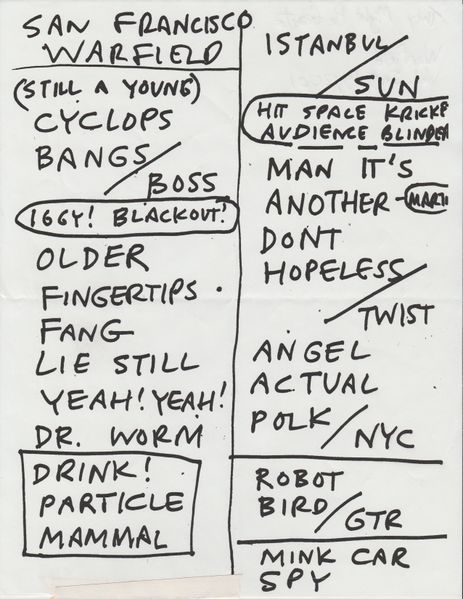 SAN FRANCISCO
WARFIELD
(STILL A YOUNG)
CYCLOPS
BANGS/
BOSS
IGGY! BLACKOUT!
OLDER
FINGERTIPS.
FANG
LIE STILL
YEAH! YEAH!
DR. WORM
DRINK!
PARTICLE
MAMMAL
ISTANBUL/
SUN
HIT SPACE KRICKE
AUDIENCE BLINDER
MAN IT'S
ANOTHER-MARTI
DONT
HOPELESS/
TWIST
ANGEL
ACTUAL
POLK/NYC
ROBOT
BIRD/GTR
MINK CAR
SPY